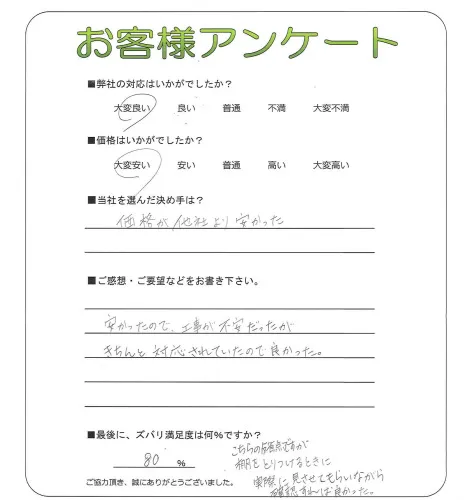 お客様アンケート
■弊社の対応はいかがでしたか？
大変良い 良い 普通 不満 大変不満
■価格はいかがでしたか？
大変安い 安い 普通 高い 大変高い
■当社を選んだ決め手は？
価格が他社より安かった
■ご感想・ご要望などをお書き下さい。
安かったので、工事が不安だったが
きちんと対応されていたので良かった。
■最後に、ズバリ満足度は何％ですか？
80 %
こちらの ですが
をとりつけるときに
実際に見させてもらいながら
すれば良かった。
ご協力頂き、誠にありがとうございました。